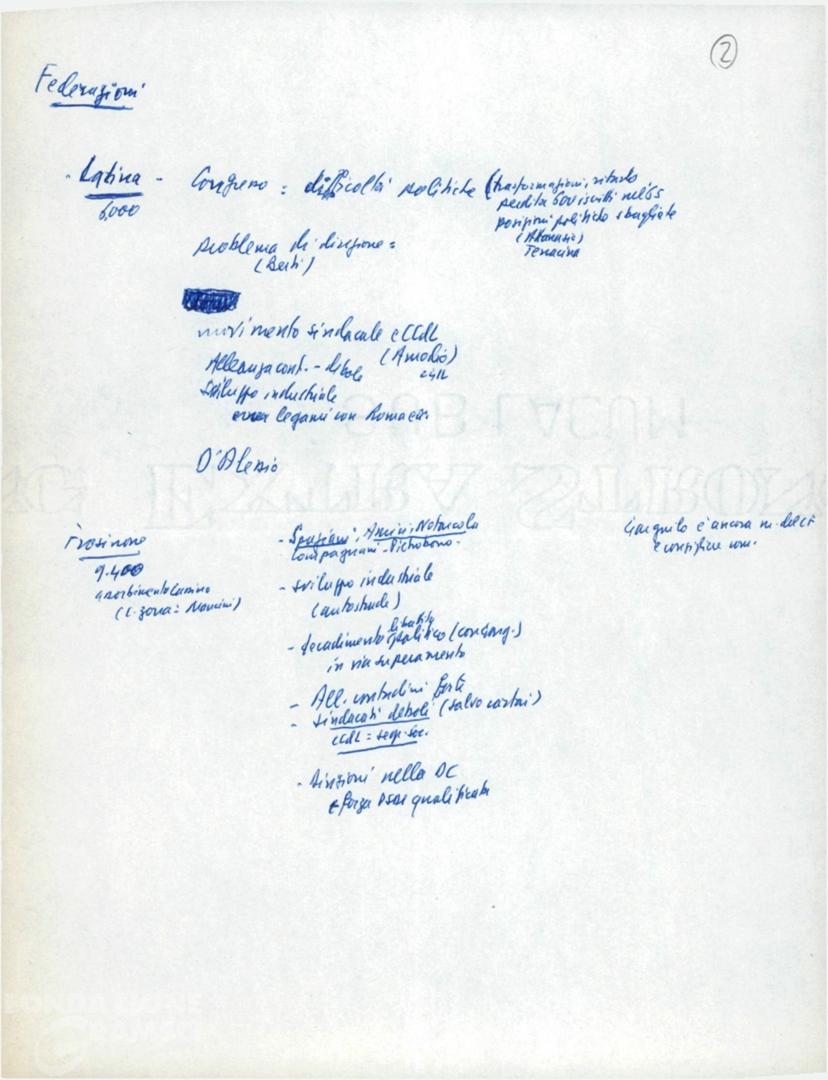 2
Federazioni
- Latina - Congresso = difficoltà politiche (trasformazioni, ritardo
6.000
perdita 600 iscritti nel 65
posizioni politiche sbagliate
(Attanasio)
Terracina
problema di direzione =
(Berti)
movimento sindacale e CCdL
(Amodio)
Alleanza cont. - debole
sviluppo industriale
legami con Roma
D'Alessio
Frosinone
9.400
assorbimento Cassino
(C. zona = Mancini)
- Spaziani, Amici, Notarcola
Compagnoni - Pichobono -
- sviluppo industriale
(autostrade)
- decadimento politico (congiung.)
in via superamento
- All. contadini forte
- sindacati deboli (salvo cartai)
CCdL = segr. soc.
- divisioni nella DC
e forza PSDI qualificata
è ancora m. del CF
e consigliere com.